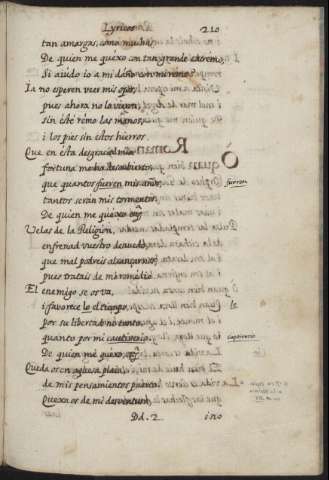 Lyricos 210
tan amargas, como muchas
De quien me quexo con tan grande extremo,
Si ayudo io a mi daño con mi remo?
Ia no esperen veer mis ojos,
pues ahora no le vieron,
sin este remo las manos,
i los pies sin estos hierros.
Que en esta desgracia mia
fortuna me ha descubierto,
que quantos fueren mis años
tantos seran mis tormentos.
De quien me quexo
Velas de la Religion,
enfrenad vuestro denuedo,
que mal podreis alcançarnos,
pues tratais de mi remedio.
El enemigo se os va,
i favorece lo el tiempo,
por su libertad no tanto,
quanto por mi cautiverio.
De quien me quexo,
Quedaos en aquessa plaia,
de mis pensamientos puerto
Quexaos de mi desventura,
Dd. 2 ino
fueron
le
captiverio